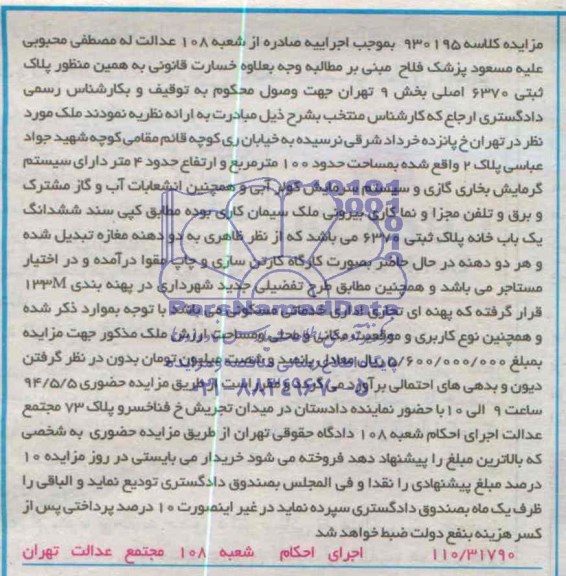 مزایده کلاسه ۹۳۰۱۹۵ بموجب اجراییه صادره از شعبه ۱۰۸ عدالت له مصطفی محبوبی
علیه مسعود پزشک فلاح مبنی بر مطالبه وجه بعلاوه خسارت قانونی به همین منظور پلاک
ثبتی ۶۳۷۰ اصلی بخش ۹ تهران جهت وصول محکوم به توقیف و بکارشناس رسمی
دادگستری ارجاع که کارشناس منتخب بشرح ذیل مبادرت به ارائه نظریه نمودند ملک مورد
نظر در تهران خ پانزده خرداد شرقی نرسیده به خیابان ری کوچه قائم مقامی کوچه شهید جواد
عباسی پلاک ۲ واقع شده بمساحت حدود ۱۰۰ مترمربع و ارتفاع حدود ۴ متر دارای سیستم
گرمایش بخاری گازی و سیستم سرمایش کولر آبی و همچنین انشعابات آب و گاز مشترک
و برق و تلفن مجزا و نما کاری بیرونی ملک سیمان کاری بوده مطابق کپی سند ششدانگ
یک باب خانه پلاک ثبتی ۶۳۷۰ می باشد که از نظر ظاهری به دو دهنه مغازه تبدیل شده
و هر دو دهنه در حال حاضر بصورت کارگاه کارتن سازی و چاپ مقوا درآمده و در اختیار
مستاجر می باشد و همچنین مطابق طرح تفضیلی جدید شهرداری در پهنه بندی M۱۳۳
قرار گرفته که پهنه ای تجاری اداری خدماتی مسکونی می باشد با توجه بموارد ذکر شده
و همچنین نوع کاربری و موقعیت مکانی و محلی ومساحت ارزش ملک مذکور جهت مزایده
بمبلغ ۵/۶۰۰/۰۰۰/۰۰۰ ریال معادل پانصد و شصت میلیون تومان بدون در نظر گرفتن
دیون و بدهی های احتمالی برآورد می گردد و مقرر است از طریق مزایده حضوری ۹۴/۵/۵
ساعت ۹ الی ۱۰ با حضور نماینده دادستان در میدان تجریش خ فناخسرو پلاک ۷۳ مجتمع
عدالت اجرای احکام شعبه ۱۰۸ دادگاه حقوقی تهران از طریق مزایده حضوری به شخصی
که بالاترین مبلغ را پیشنهاد دهد فروخته می شود خریدار می بایستی در روز مزایده ۱۰
درصد مبلغ پیشنهادی را نقدا و فی المجلس بصندوق دادگستری تودیع نماید و الباقی را
ظرف یک ماه بصندوق دادگستری سپرده نماید در غیر اینصورت ۱۰ درصد پرداختی پس از
کسر هزینه بنفع دولت ضبط خواهد شد
۱۱۰/۳۱۷۹۰ اجرای احکام شعبه ۱۰۸ مجتمع عدالت تهران
ParsNamadData
۰۲۱-۸۸۳۴۹۶۷۰-۵